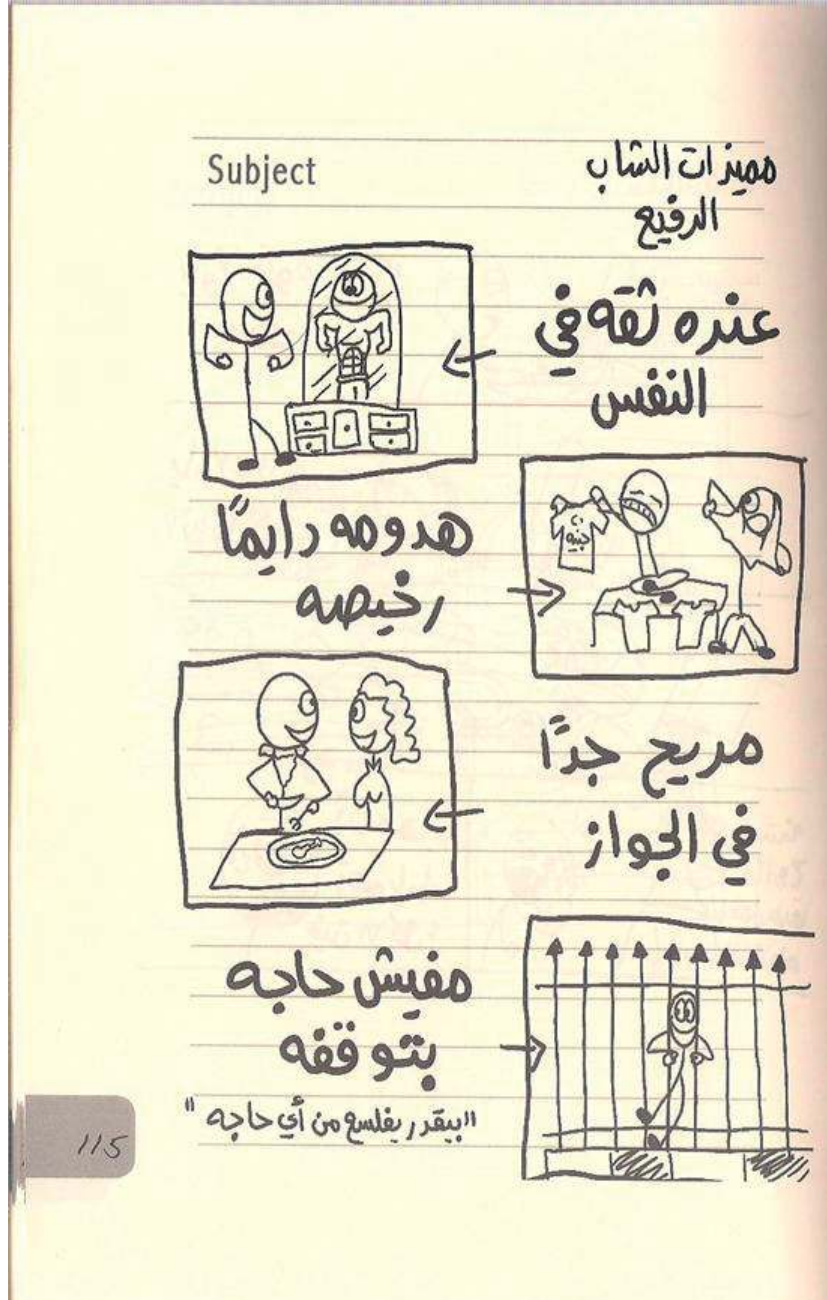 Subject
مميزات الشاب
الرفيع
عنده ثقه في
النفس
هدومه دايمًا
رخيصه
مريح جدًا
في الجواز
مفيش حاجه
بتوقفه
"بيقدر يفلسع من أي حاجه"
115